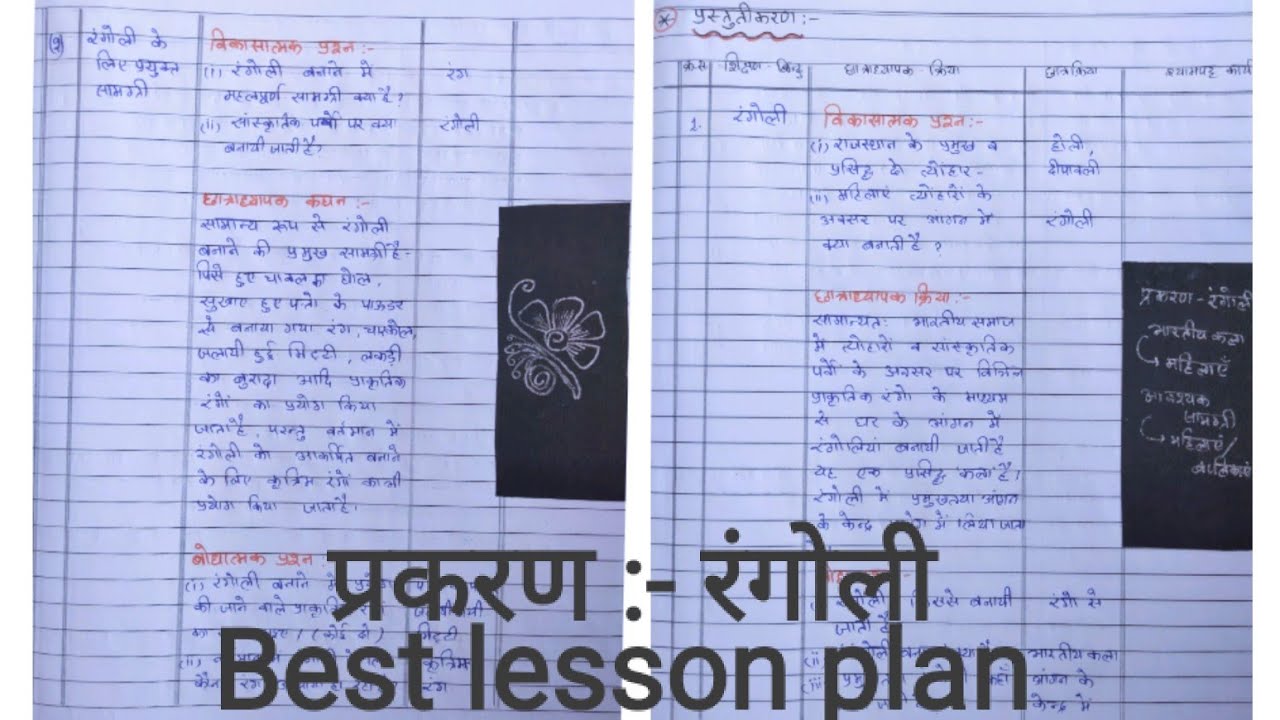 (2) रंगोली के
लिए प्रयुक्त
सामग्री
विकासात्मक प्रश्न :-
(i) रंगोली बनाने में
महत्वपूर्ण सामग्री क्या है?
रंग
(ii) सांस्कृतिक पर्वो पर क्या
बनायी जाती है?
रंगोली
छात्राध्यापक कथन :-
सामान्य रूप से रंगोली
बनाने की प्रमुख सामग्री है-
पिसे हुए चावल का घोल,
सुखाए हुए पत्तो के पाऊडर
से बनाया गया रंग, चारकोल,
जलायी हुई मिट्टी, लकड़ी
का बुरादा आदि प्राकृतिक
रंगों का प्रयोग किया
जाता है, परन्तु वर्तमान में
रंगोली को आकर्षित बनाने
के लिए कृत्रिम रंगों का भी
प्रयोग किया जाता है।
बोधात्मक प्रश्न :
(i) रंगोली बनाने में
की जाने वाले
(कोई दो)
मिट्टी
(ii)
कृत्रिम
रंग
* प्रस्तुतीकरण :-
क्रस शिक्षण बिन्दु छात्राध्यापक क्रिया छात्रक्रिया श्यामपट्ट कार्य
1. रंगोली
विकासात्मक प्रश्न :-
(i) राजस्थान के प्रमुख व
प्रसिद्ध दो त्योहार-
होली,
दीपावली
(ii) महिलाएं त्योहारों के
अवसर पर आंगन में
क्या बनाती है?
रंगोली
छात्राध्यापक क्रिया :-
सामान्यतः भारतीय समाज
में त्योहारों व सांस्कृतिक
पर्वों के अवसर पर विभिन्न
प्राकृतिक रंगो के माध्यम
से घर के आंगन में
रंगोलियां बनायी जाती है
यह एक प्रसिद्ध कला है।
रंगोली में प्रमुखतया आंगन
के केन्द्र में लिया जाता
प्रकरण - रंगोली
भारतीय कला
महिलाएँ
आवश्यक
सामग्री
महिलाएं/
बालिकाएं
रंगोली किससे बनायी
जाती है
रंगो से
(ii)
भारतीय कला
(iii)
आंगन के
केन्द्र में
प्रकरण :- रंगोली
Best lesson plan